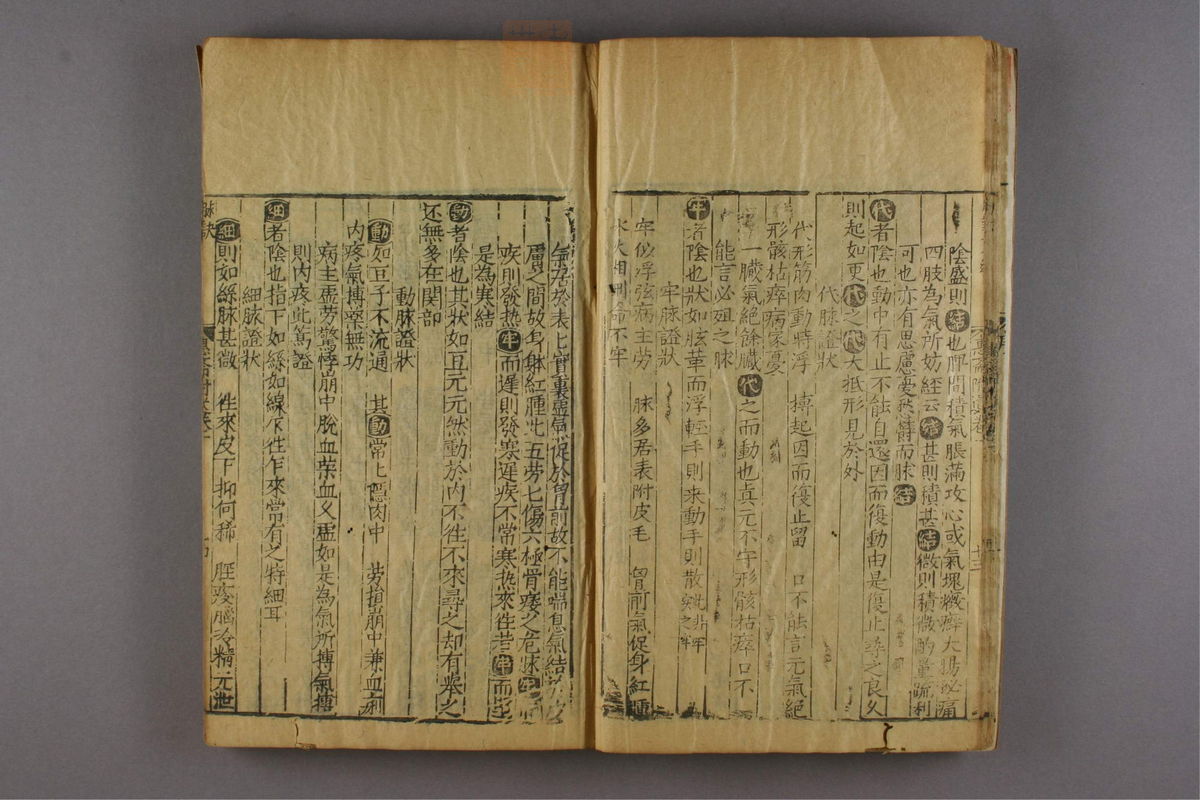 陰盛則結也脾間積氣脹滿攻心或氣塊癥癖大腸祕痛
四肢為氣所妨經云積甚則積甚結微則積微酌量疏利
可也亦有思慮憂愁欝而脉結
代者陰也動中有止不能自還因而復動由是復止尋之良久
則起如更代之代大抵形見於外
代脉證狀
代形筋肉動時浮 摶起因而復止留 口不能言元氣絕
形骸枯瘁病家憂
一臟氣絕餘臟代之而動也真元不守形骸枯瘁口不
能言必殂之脉
牢者陰也狀如眩革而浮輕手則来動手則散
牢脉證狀
牢似浮弦病主勞 脉多居表附皮毛 胷前氣促身紅腫
水火相刑命不牢
氣居於表上實裏虛氣促於胷前故不能喘息氣結於皮
膚之間故身躰紅腫此五勞七傷六極骨痿之危脉牢
疾則發熱牢而遲則發寒遲疾不常寒热來徃若牢而
是為寒結
動者陰也其狀如豆兀兀然動於內不徃不來尋之却有举之
还無多在関部
動脉證狀
動如豆子不流通 其動常上隱肉中 勞損崩中兼血痢
内疼氣摶藥無功
病主虛勞驚悸崩中脫血荣血又虛如是為氣所摶氣摶
則内疼此篤證
細者陰也指下如絲如線乍徃乍來常有之特細耳
細脉證狀
細則如絲脉甚微 徃來皮下抑何稀 脛痠腦冷精元泄